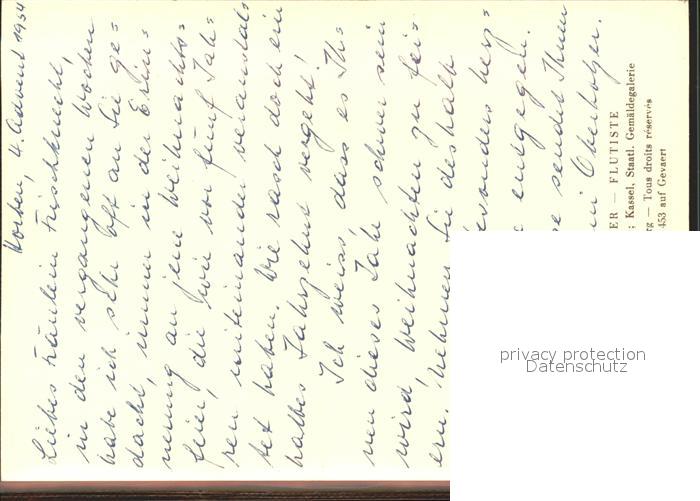 Horben, 4. Advent 1954
Liebes Fräulein Frischknecht,
in den vergangenen Wochen
habe ich sehr oft an Sie ge=
dacht, immer in der Erin=
nerung an jene Weihnachts=
feier, die wir vor fünf Jah=
ren miteinander veranstal=
tet haben. Wie rasch doch ein
halbes Jahrzehnt vergeht!
Ich weiss, dass es Ih=
nen dieses Jahr schwer sein
wird, Weihnachten zu fei=
ern. Nehmen Sie deshalb
besonders herz=
entgegen.
sendet Ihnen
Oberholzer.
ER — FLUTISTE
: Kassel, Staatl. Gemäldegalerie
rg — Tous droits réservés
453 auf Gevaert
privacy protection
Datenschutz